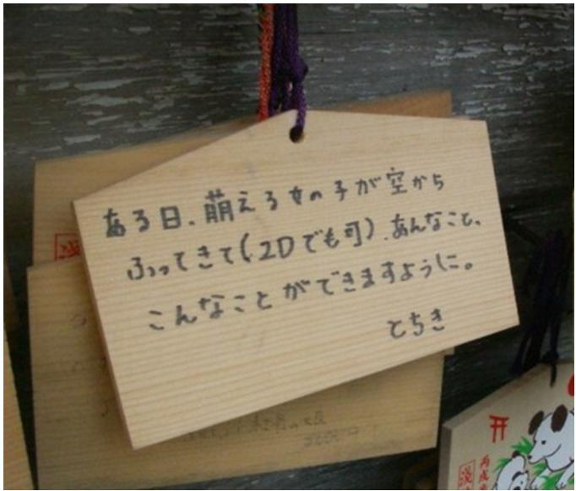 ある日、萌える女の子が空から
ふってきて(2Dでも可)、あんなこと、
こんなことができますように。
とちき